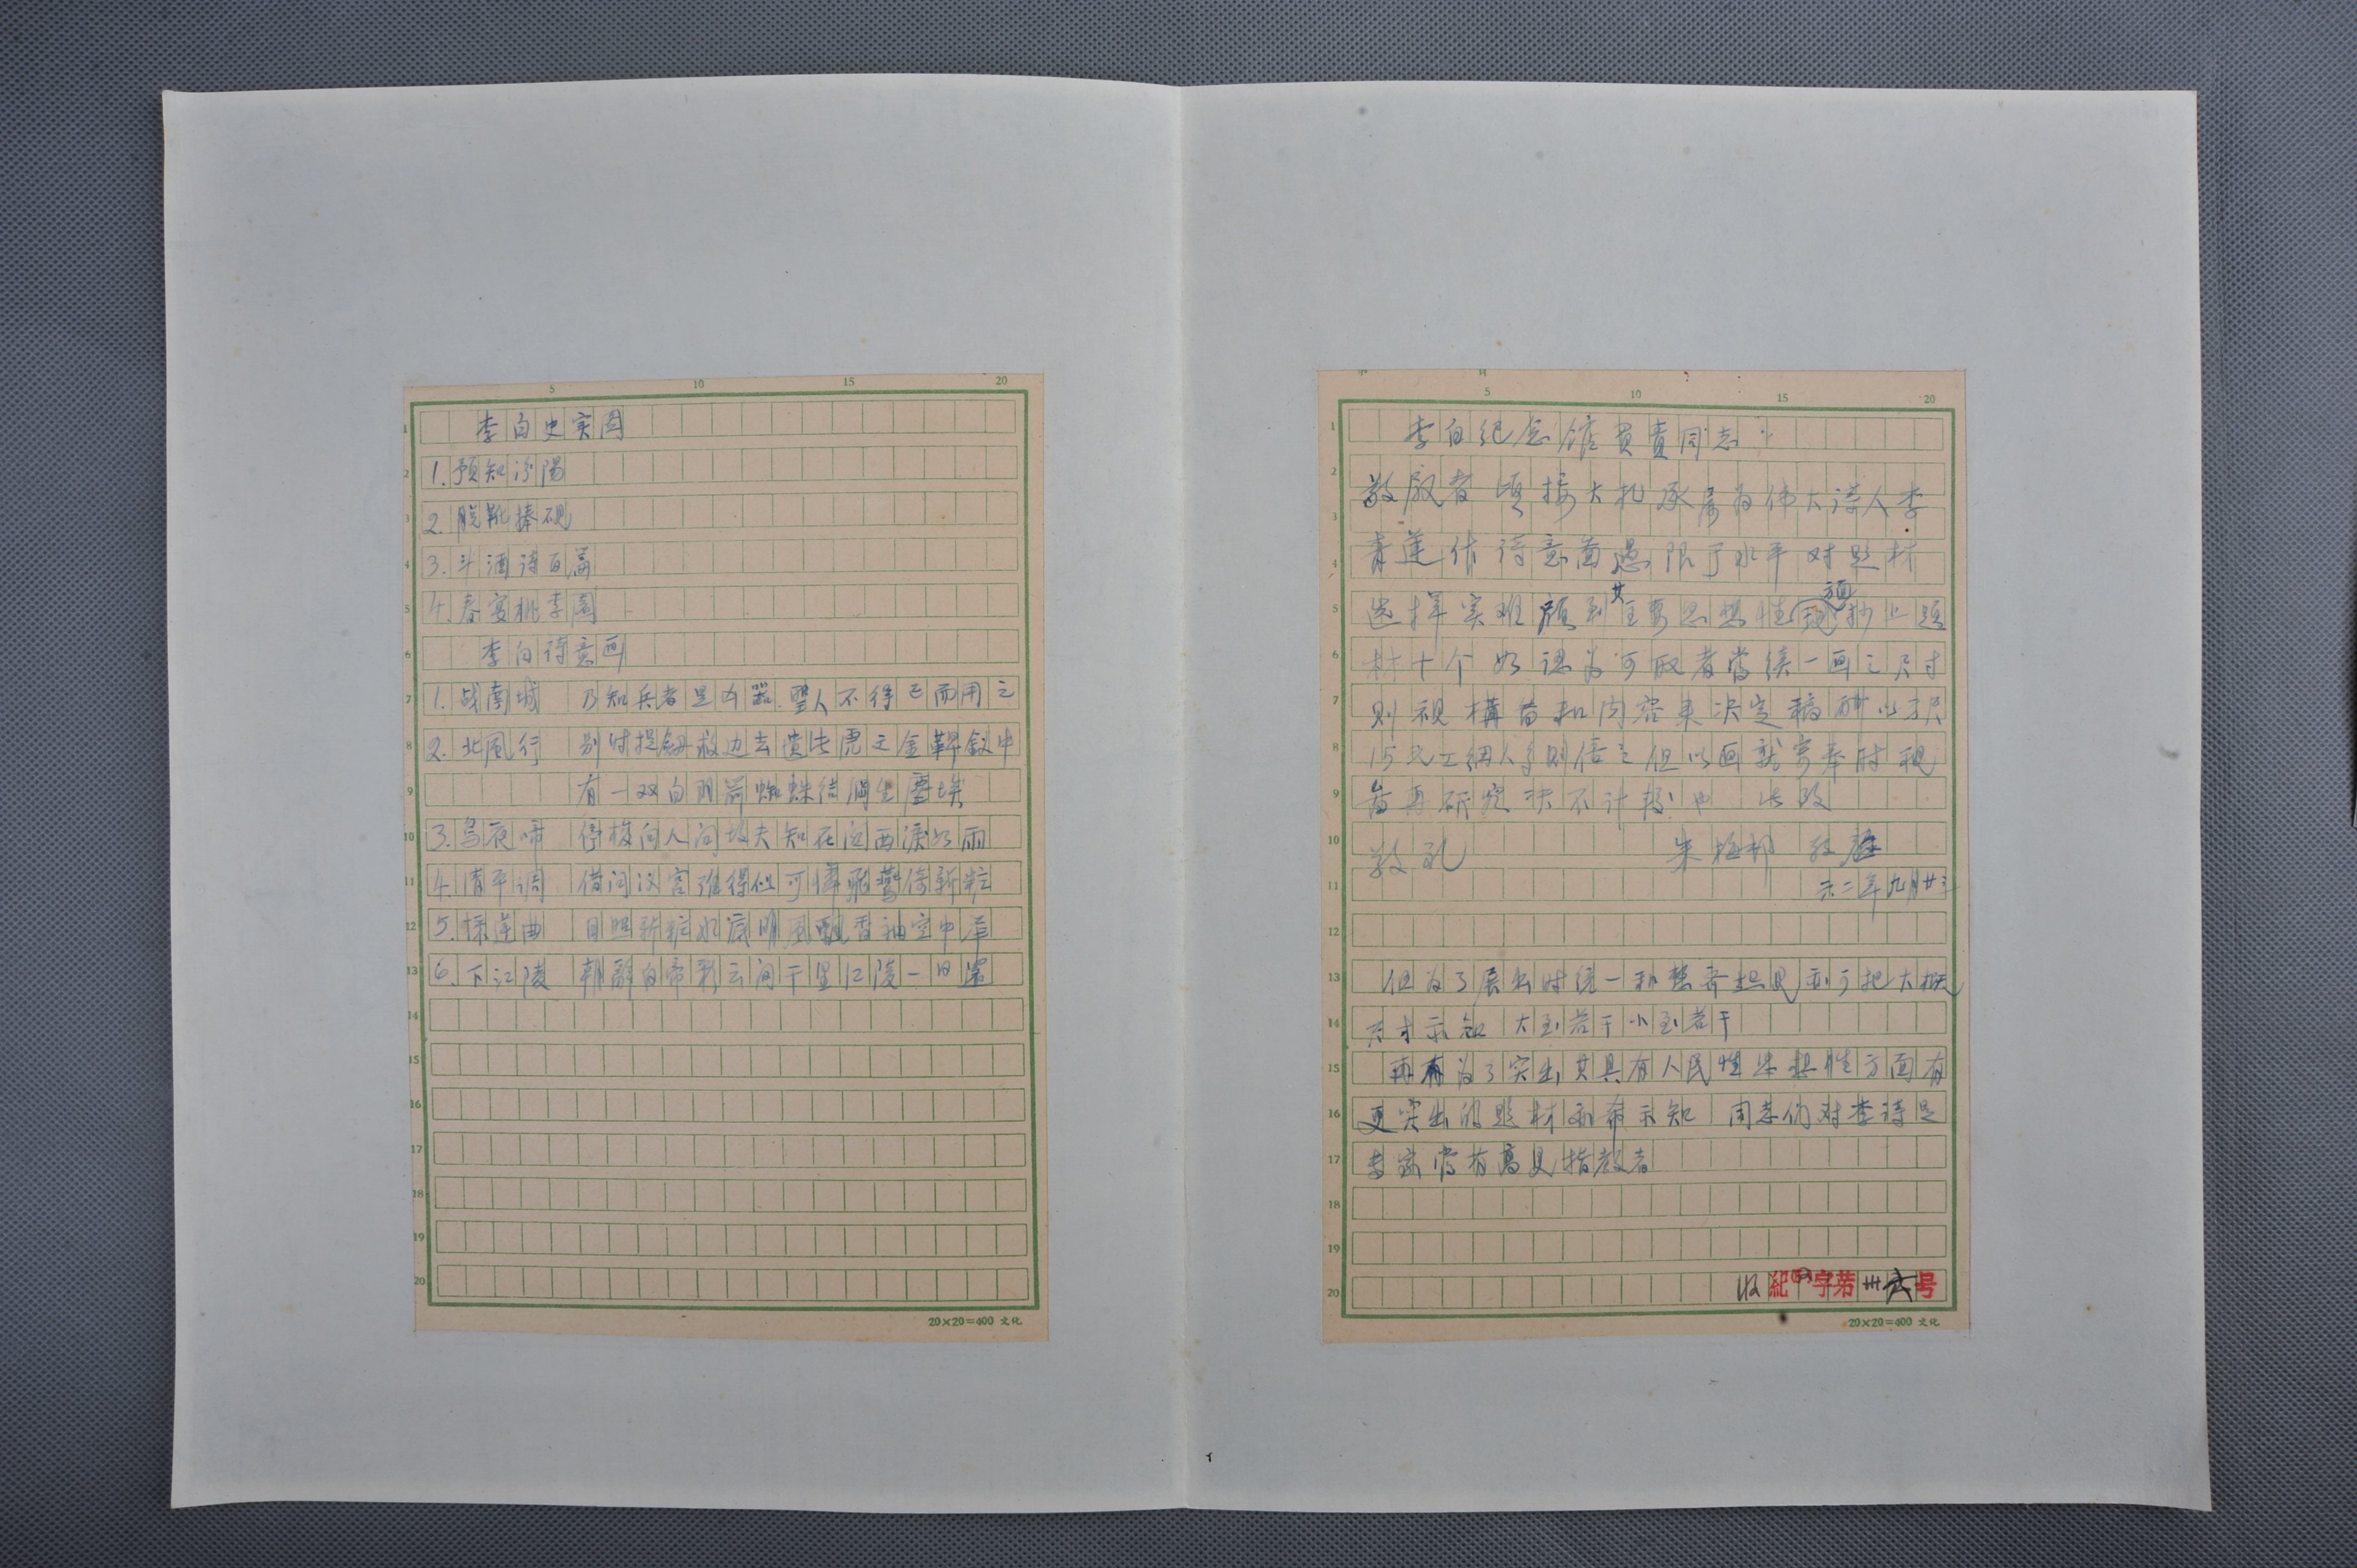 李白史实图
1.预知汾阳
2.脱靴捧砚
3.斗酒诗百篇
4.春宴桃李园
李白诗意画
1.战南城 乃知兵者是凶器.圣人不得已而用之
2.北風行 别时提剑救边去遗此虎文金鞞釵中
有一双白羽箭蜘蛛结网生塵埃
3.乌夜啼 停梭向人问故夫知在边西淚如雨
4.清平调 借问汉宫谁得似可憐飛燕倚新粧
5.採莲曲 日照新粧水底明風飘香袖空中举
6.下江陵 朝辞白帝彩云间千里江陵一日還
20×20=400 文化
李白纪念馆負责同志：
敬啟者 頃接大札承属为伟大诗人李
青莲作诗意畫愚限于水平对题材
选择实难顧到其主要思想性方面现抄上题
材十个如认为可取者當续一画之尺寸
则视構畐和内容来决定稿酧以方尺
15元工細人手则倍之但以画就寄奉时视
畐再研究决不计较也 此致
敬礼 朱梅邨 敬啓
六二年九月廿
但为了展出时统一和整齐起見亦可把大概
尺寸示知 大到若干小到若干
再有为了突出其具有人民性思想性方面有
更突出的题材亦希示知 同志们对李诗是
專家當有高見指教者
收紀字第卅六号
20×20=400 文化